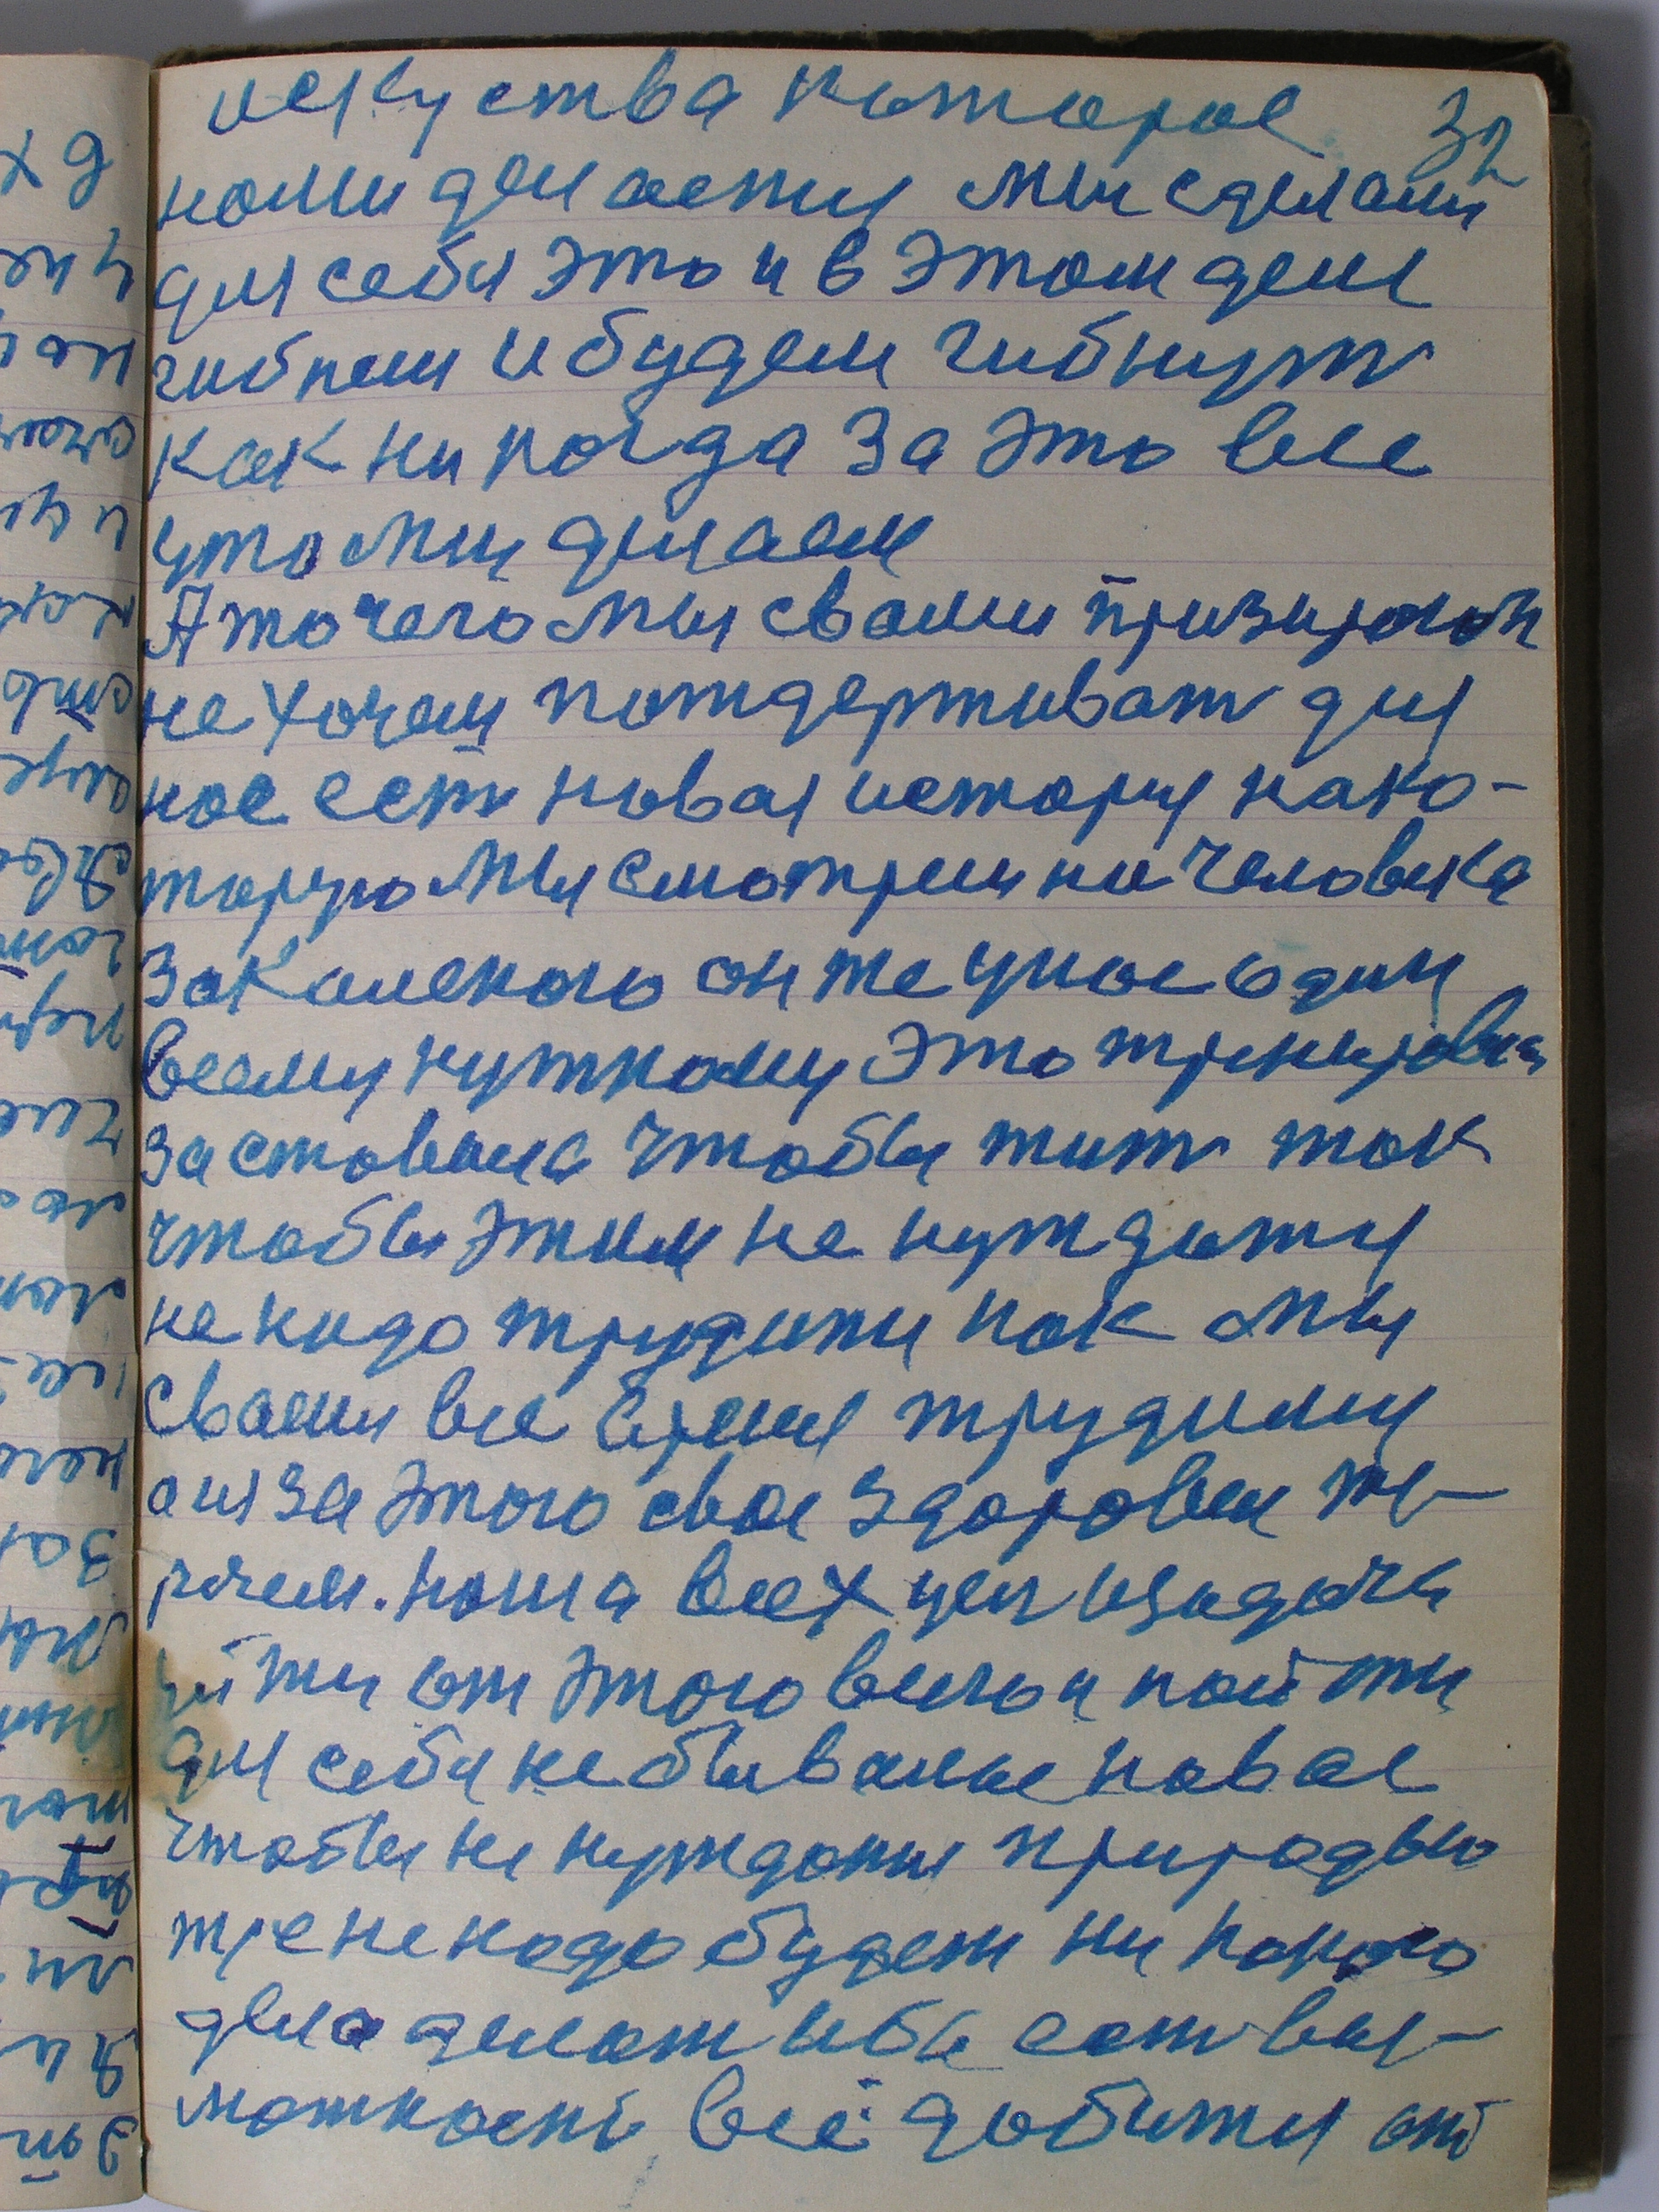 искуства которое 32
нами делается мы сделали
для себя это и в этом деле
гибнем и будем гибнут
как ни когда за это все
што мы делаем
А то чего мы свами призирали
не хочем потдерживат для
нас есть новая история на ко-
торую мы смотрим на человека
за каленого он же у нас один
всему нужному это тренировка
заставила чтобы жит так
чтобы этим не нуждатся
не надо трудится как мы
свами все время трудимся
а из за этого свое здоровье те-
ряем. наша всех цель и задача
уйти от этого всего и найти
для себя небывалое новое
чтобы не нуждатся природою
тре не надо будет ни какого
дела делат ибо есть воз-
можность все добится от